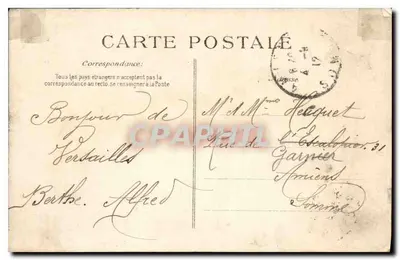 CARTE POSTALE
Correspondance:
Tous les pays étrangers n'acceptent pas la
correspondance au recto, de renseigner à la Poste
Bonjour de
Versailles
Berthe. Alfred
Mr et Mme Hecquet
Rue de l'Escalopier. 31
Garnier
Amiens
Somme
CPARAMA